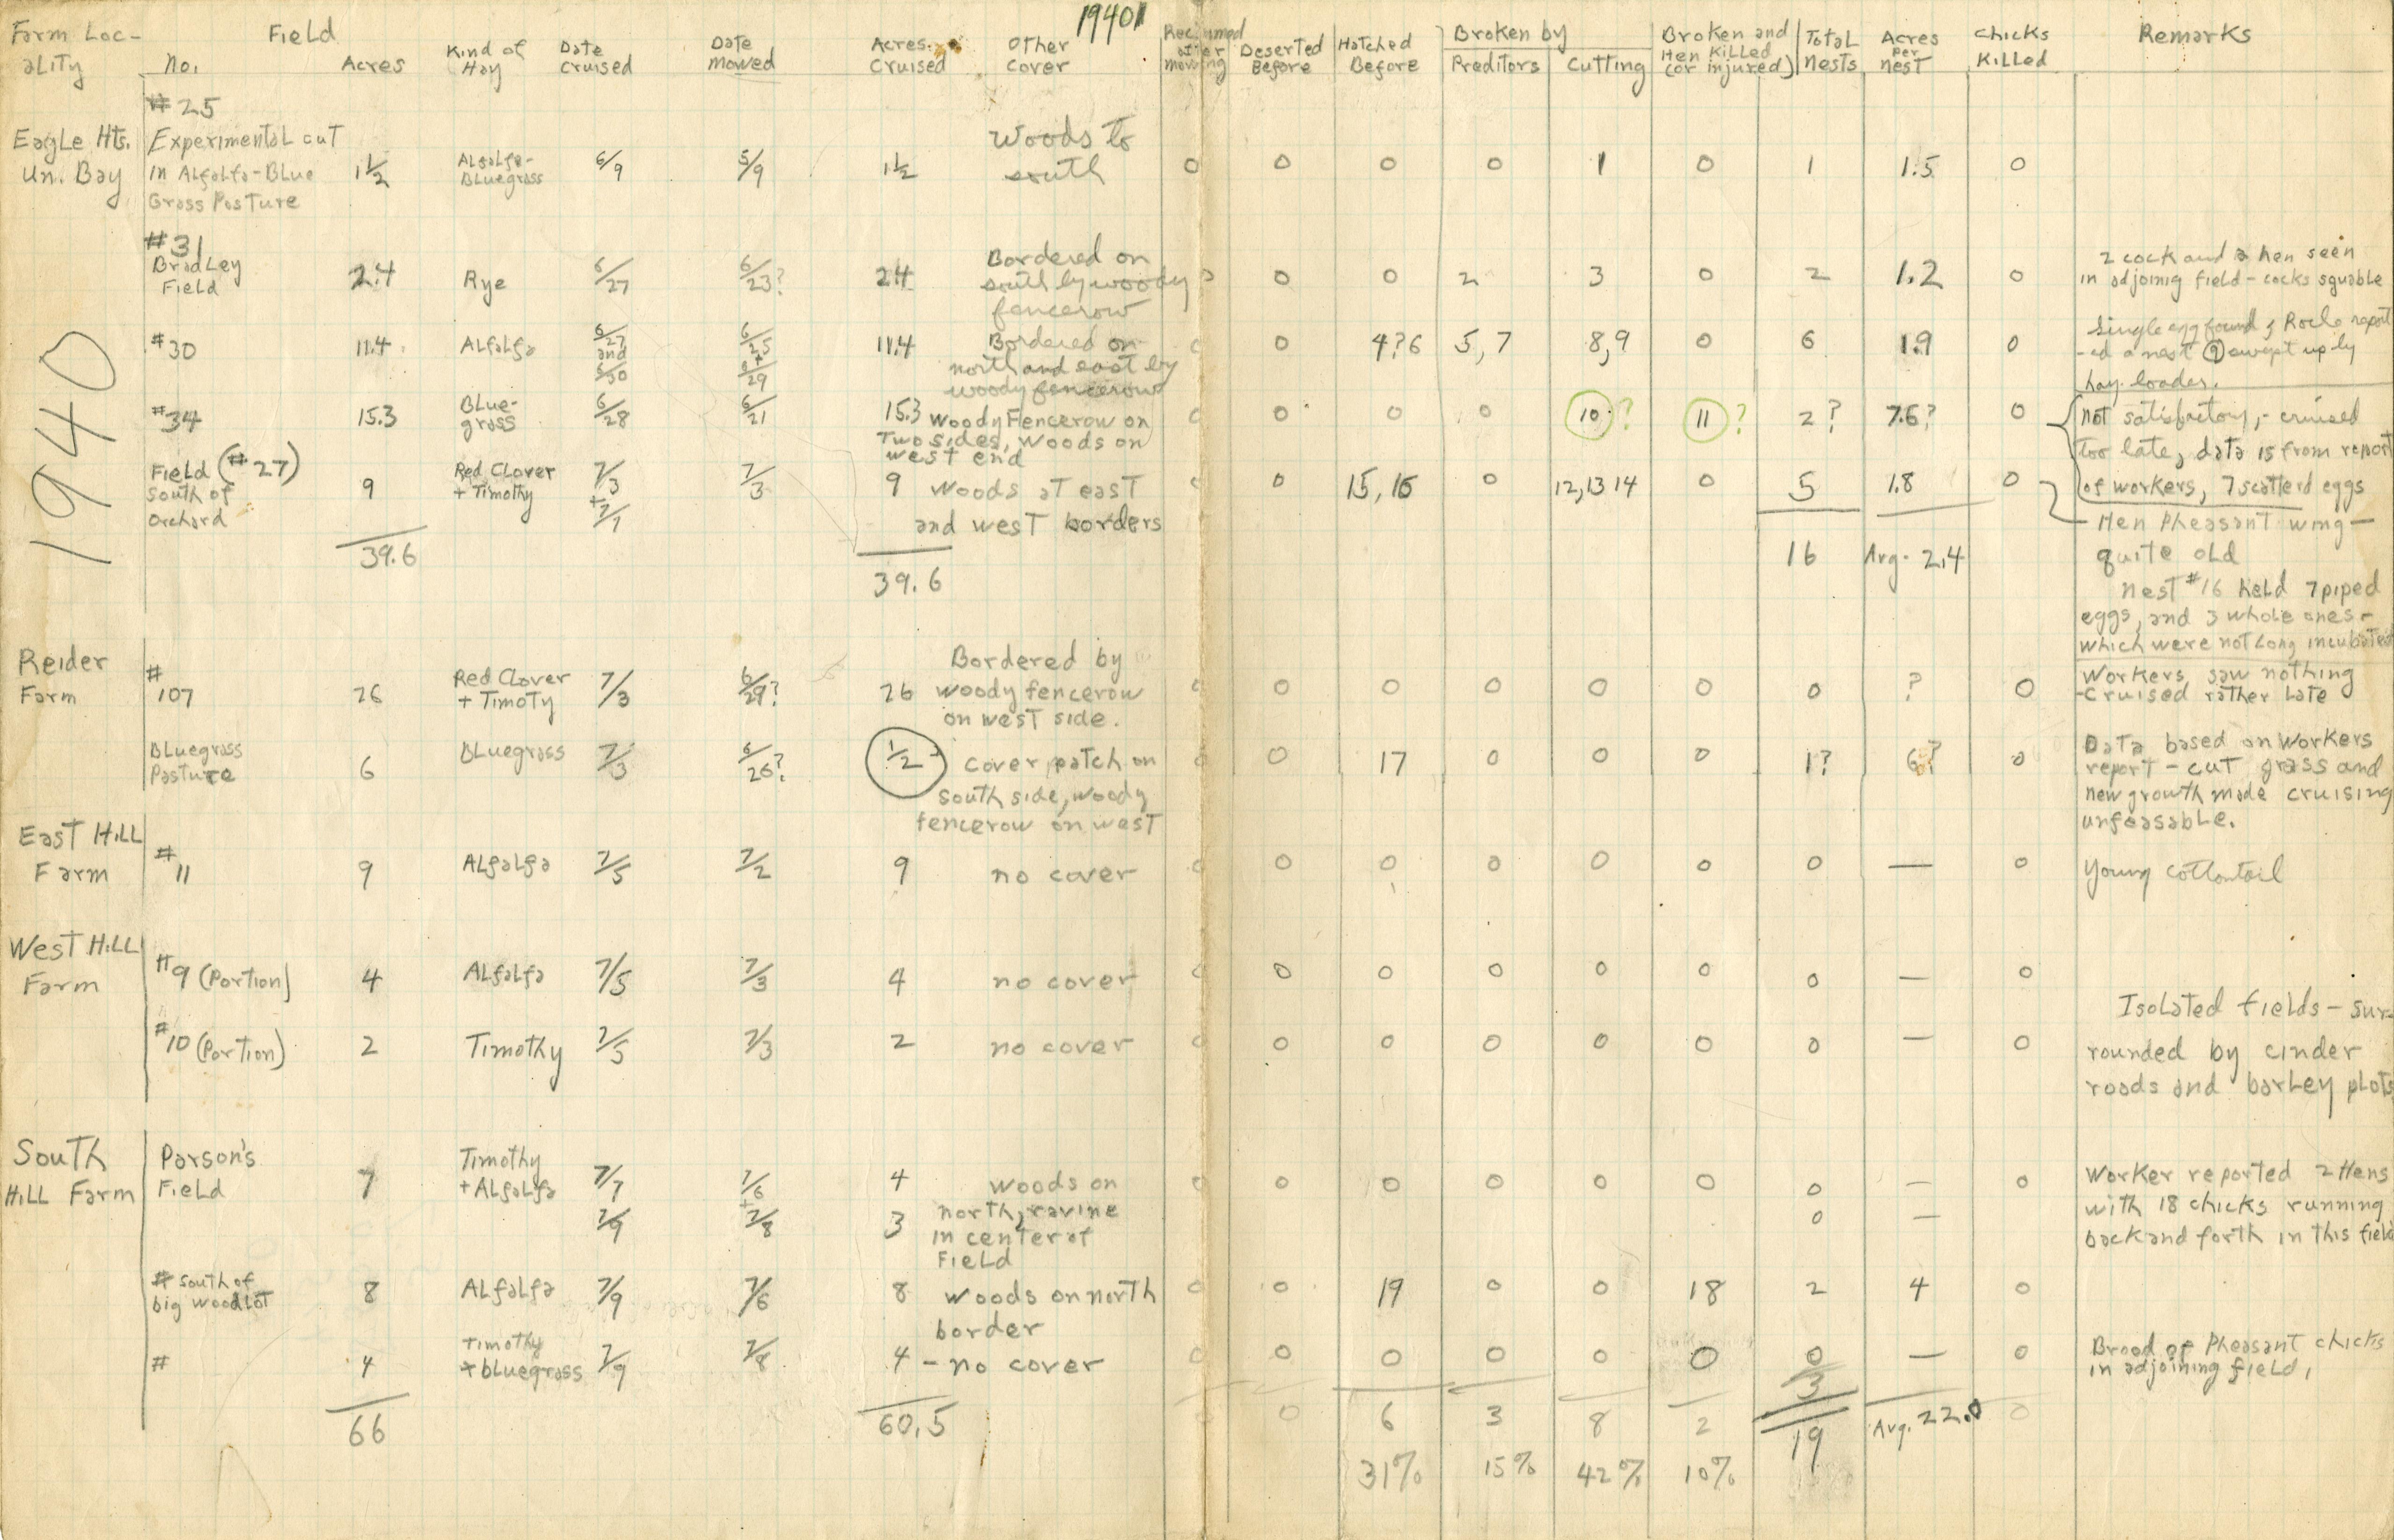 19401
Farm Loc-ality | Field No. | Acres | Kind of Hay | Date Cruised | Date Mowed | Acres Cruised | Other Cover | after mowing | Deserted Before | Hatched Before | Broken by Preditors | Cutting | Broken and Hen Killed (or injured) | Total Nests | Acres per nest | Chicks Killed | Remarks
1940
Eagle Hts. Un. Bay | #25 Experimental cut in Alfalfa-Blue Grass Pasture | 1 1/2 | Alfalfa-Bluegrass | 6/9 | 5/9 | 1 1/2 | Woods to south | 0 | 0 | 0 | 0 | 1 | 0 | 1 | 1.5 | 0
#31 Bradley Field | 2.4 | Rye | 6/27 | 6/23? | 2.4 | Bordered on south by woody fencerow | 0 | 0 | 0 | 2 | 3 | 0 | 2 | 1.2 | 0 | 2 cock and a hen seen in adjoinig field - cocks squable
#30 | 11.4 | Alfalfa | 6/27 and 6/30 | 6/25 + 6/29 | 11.4 | Bordered on north and east by woody fencerow | 0 | 0 | 4?6 | 5,7 | 8,9 | 0 | 6 | 1.9 | 0 | Single egg found & report-ed a nest 9 swept up by hay loader.
#34 | 15.3 | Blue-grass | 6/28 | 6/21 | 15.3 | Woody Fencerow on Two sides, woods on west end | 0 | 0 | 0 | 0 | 10? | 11? | 2? | 7.6? | 0 | not satisfactory, - cruised too late, data is from report of workers, 7 scatterd eggs
Field (#27) South of Orchard | 9 | Red Clover + Timothy | 7/3 + 7/7 | 7/3 | 9 | woods at east and west borders | 0 | 0 | 15, 16 | 0 | 12,13 14 | 0 | 5 | 1.8 | 0 | Hen Pheasant wing - quite old
39.6 | 39.6 | 16 | Avg. 2.4
Nest #16 held 7 piped eggs, and 3 whole ones - which were not long incubated
Reider Farm | #107 | 26 | Red Clover + Timoty | 7/3 | 6/29? | 26 | Bordered by woody fencerow on west side. | 0 | 0 | 0 | 0 | 0 | 0 | 0 | ? | 0 | Workers saw nothing - cruised rather late
Bluegrass Pasture | 6 | Bluegrass | 7/3 | 6/26? | 1/2 | cover patch on south side, woody fencerow on west | 0 | 0 | 17 | 0 | 0 | 0 | 1? | 6? | 0 | Data based on Workers report - cut grass and new growth made cruising unfeasable.
East Hill Farm | #11 | 9 | Alfalfa | 7/5 | 7/2 | 9 | no cover | 0 | 0 | 0 | 0 | 0 | 0 | 0 | — | 0 | Young cottontail
West Hill Farm | #9 (Portion) | 4 | Alfalfa | 7/5 | 7/3 | 4 | no cover | 0 | 0 | 0 | 0 | 0 | 0 | 0 | — | 0
#10 (Portion) | 2 | Timothy | 7/5 | 7/3 | 2 | no cover | 0 | 0 | 0 | 0 | 0 | 0 | 0 | — | 0 | Isolated fields - sur-rounded by cinder roads and barley plots
South Hill Farm | Parson's Field | 7 | Timothy + Alfalfa | 7/7 | 7/6 | 4 | woods on north, ravine in center of Field | 0 | 0 | 0 | 0 | 0 | 0 | 0 | — | 0 | Worker reported 2 Hens with 18 chicks running back and forth in this field
7/9 | + 7/8 | 3 | 0 | —
# South of big woodlot | 8 | Alfalfa | 7/9 | 7/6 | 8 | woods on north border | 0 | 0 | 19 | 0 | 0 | 18 | 2 | 4 | 0
# | 4 | Timothy + bluegrass | 7/9 | 7/8 | 4 | - no cover | 0 | 0 | 0 | 0 | 0 | 0 | 0 | — | 0 | Brood of Pheasant chicks in adjoining field,
3
66 | 60.5 | 0 | 0 | 6 | 3 | 8 | 2 | 19 | Avg. 22.0 | 0
31% | 15% | 42% | 10%